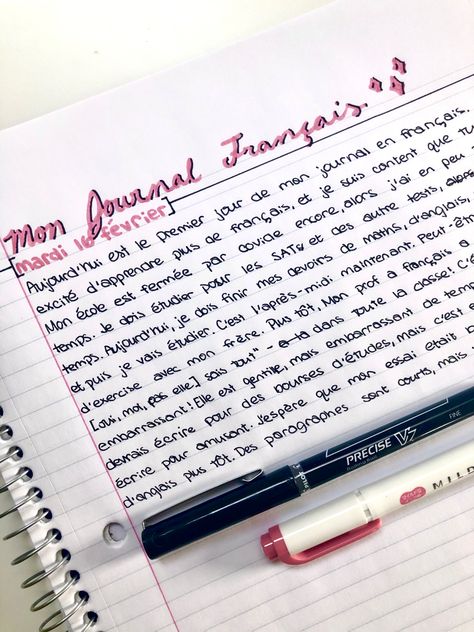 Mon Journal Français
mardi 16 février
Aujourd'hui est le premier jour de mon journal en français.
excité d'apprendre plus de français, et je suis content que tu
Mon école est fermée par covide encore, alors j'ai en peu
temps. Je dois étudier pour les SATs et des autre tests, alors
temps. Aujourd'hui, je dois finir mes devoirs de maths, d'anglais,
et puis je vais étudier. C'est l'après-midi maintenant. Peut-êt
d'exercise avec mon frère. Plus tôt, Mon prof a français a
[oui, moi, pas elle] sais tout" - dans toute la classe! C'é
embarrassant! Elle est gentille, mais embarrassant de temp
devrais écrire pour des bourses d'études, mais c'est
écrire pour amusant. J'espère que mon essai était
d'anglais plus tôt. Des paragraphes sont courts, mais
PILOT
PRECISE V7
Rolling Ball
FINE
ZEBRA
MIL